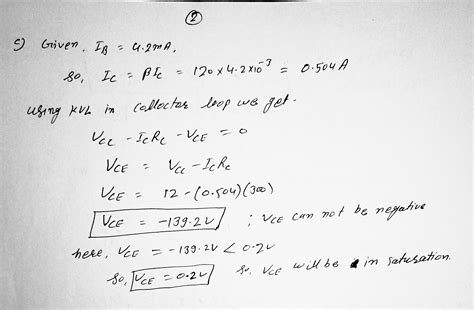 ②
c) Given, I_B = 4.2mA,
so, I_C = βI_C = 120 x 4.2x10^-3 = 0.504A
using KVL in collector loop we get.
V_CC - I_C R_C - V_CE = 0
V_CE = V_CC - I_C R_C
V_CE = 12 - (0.504)(300)
V_CE = -139.2V ; V_CE can not be negative
here, V_CE = -139.2V < 0.2V
So, V_CE = 0.2V So, V_CE will be in saturation.